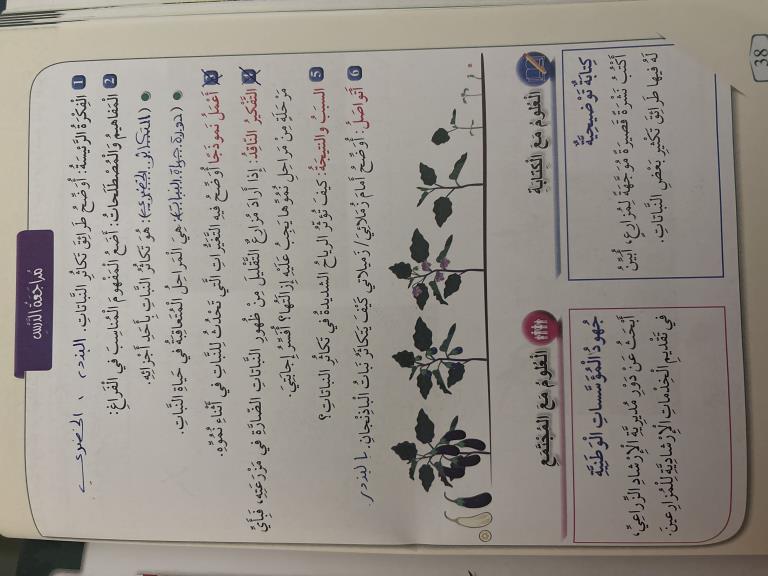 مُراجَعَةُ الدَّرْسِ
1 الْفِكْرَةُ الرَّئيسَةُ: أُوَضِّحُ طَرائِقَ تَكاثُرِ النَّباتاتِ. البذور ، الخضري
2 الْمَفاهيمُ وَالْمُصْطَلَحاتُ: أَضَعُ الْمَفْهومَ الْمُناسِبَ في الْفَراغِ:
(التكاثر الخضري): هُوَ تَكاثُرُ النَّباتِ بِأَحَدِ أَجْزائِهِ.
(دورة حياة النبات): هِيَ الْمَراحِلُ الْمُتَعاقِبَةُ في حَياةِ النَّباتِ.
3 أَعْمَلُ نَموذَجًا أُوَضِّحُ فيهِ التَّغَيُّراتِ الَّتي تَحْدُثُ لِلنَّباتِ في أَثْناءِ نُمُوِّهِ.
4 التَّفْكيرُ النّاقِدُ: إِذا أَرادَ مُزارِعٌ التَّقْليلَ مِنْ ظُهورِ النَّباتاتِ الضّارَّةِ في مَزْرَعَتِهِ، فَبِأَيِّ
مَرْحَلَةٍ مِنْ مَراحِلِ نُمُوِّها يَجِبُ عَلَيْهِ إِزالَتُها؟ أُفَسِّرُ إِجابَتِيَ.
5 السَّبَبُ وَالنَّتيجَةُ: كَيْفَ تُؤَثِّرُ الرِّياحُ الشَّديدَةُ في تَكاثُرِ النَّباتاتِ؟
6 أَتَواصَلُ: أُوَضِّحُ أَمامَ زُمَلائي/ زَميلاتي كَيْفَ يَتَكاثَرُ نَباتُ الْباذِنْجانِ. بالبذور
الْعُلومُ مَعَ الْكِتابَةِ
كِتابَةٌ تَوْضيحِيَّةٌ
أَكْتُبُ نَشْرَةً قَصيرَةً مُوَجَّهَةً لِمُزارِعٍ، أُبَيِّنُ
لَهُ فيها طَرائِقَ تَكْثيرِ بَعْضِ النَّباتاتِ.
الْعُلومُ مَعَ الْمُجْتَمَعِ
جُهودُ الْمُؤَسَّساتِ الْوَطَنِيَّةِ
أَبْحَثُ عَنْ دَوْرِ مُديرِيَّةِ الْإِرْشادِ الزِّراعِيِّ،
في تَقْديمِ الْخِدْماتِ الْإِرْشادِيَّةِ لِلْمُزارِعينَ.
38